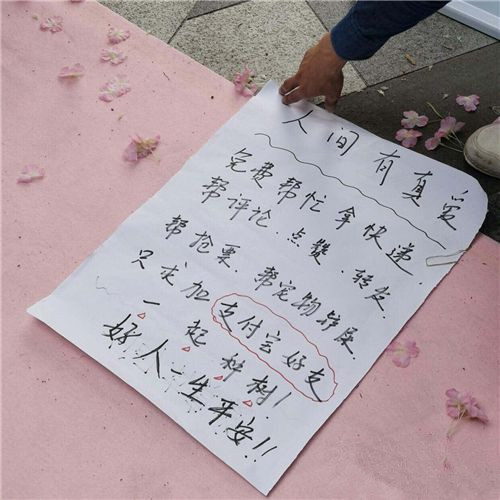 人间有真爱
免费帮忙拿快递.
帮评论.点赞.转发.
帮抢票 帮宠物铲屎
只求加支付宝好友
一起种树!!
好人一生平安!!